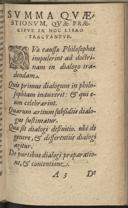 SVMMA QVÆ-
STIONVM, QVÆ PRÆ-
CIPVE IN HOC LIBRO
TRACTANTVR.
Qva caussa Philosophos
impulerint ad doctri-
nam in dialogo tra-
dendam.
Quis primus dialogum in philo-
sophiam inuexerit: & qui e-
um celebrarint.
Quarum artium subsidiis dialo-
gus
Quid sit dialogi definitio. vbi de
genere, & differentiis dialogi
agitur.
De partibus dialogi præparatio-
ne, & contentione.
A 3 De